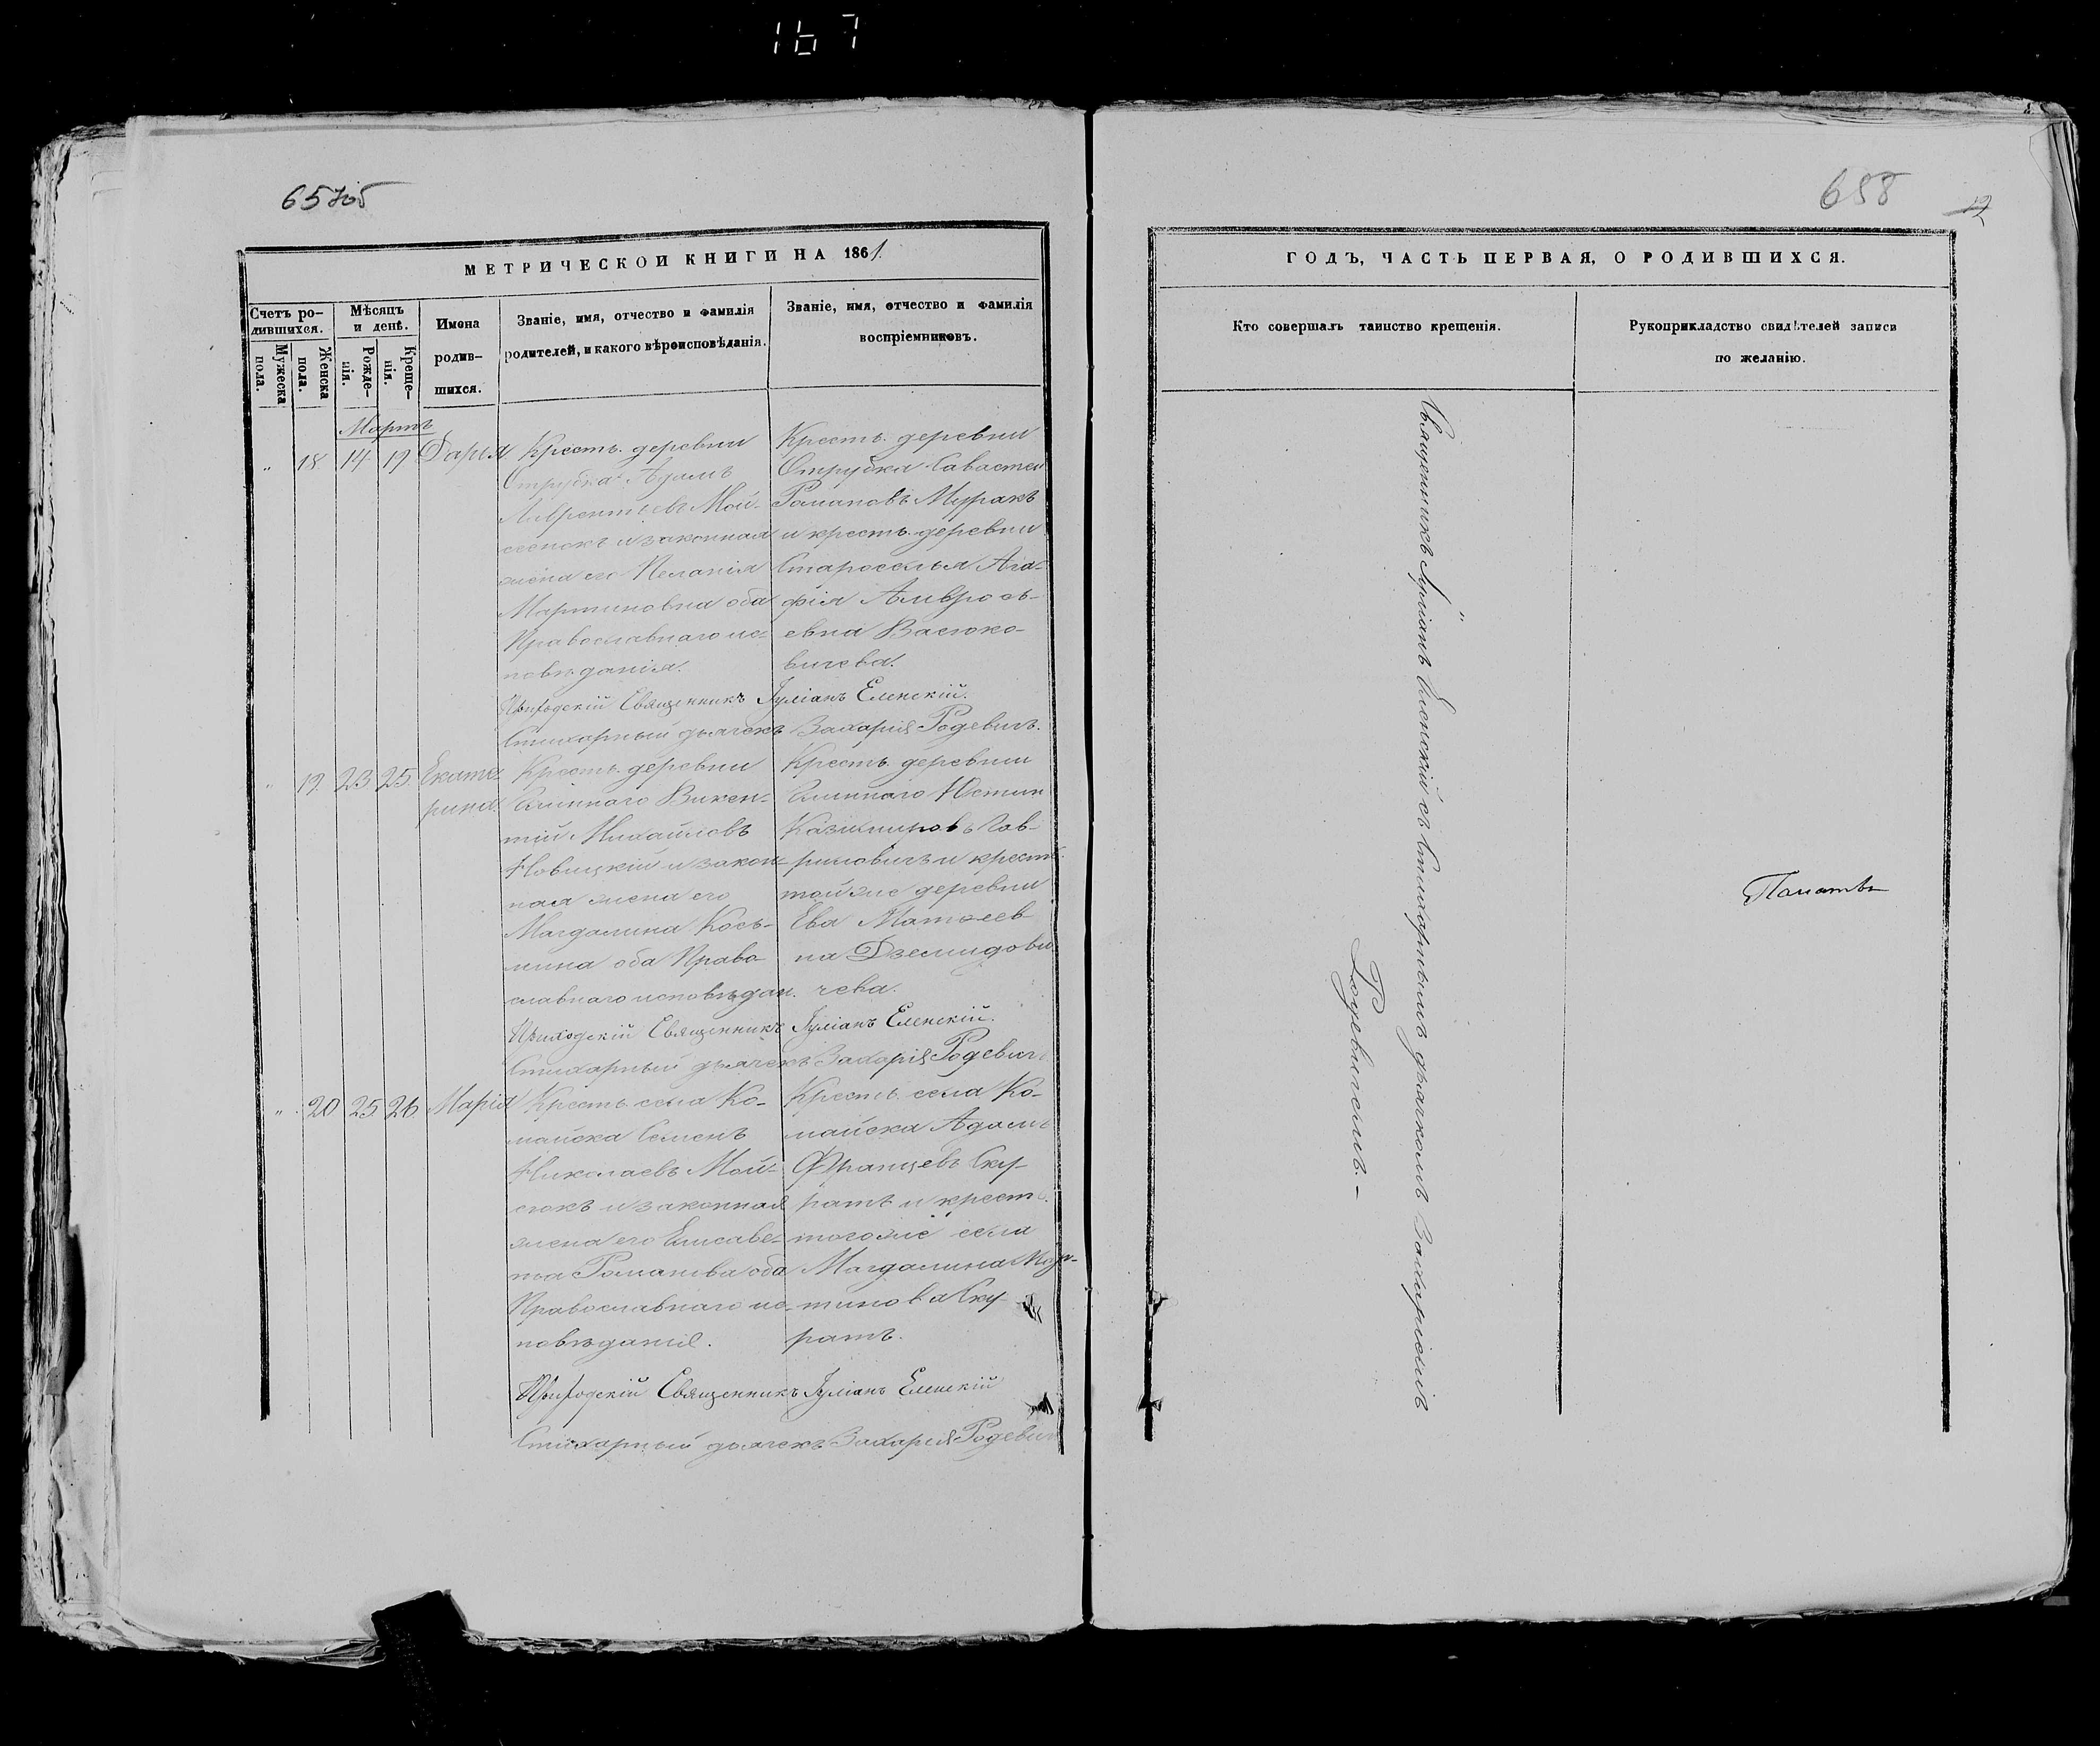 167
657об
658
12
МЕТРИЧЕСКОЙ КНИГИ НА 1861
Счетъ ро-
дившихся.
Мужеска
пола.
Женска
пола.
Мѣсяцъ
и день.
Рожде-
нія.
Креще-
нія.
Имена
родив-
шихся.
Званіе, имя, отчество и фамилія
родителей, и какого вѣроисповѣданія.
Званіе, имя, отчество и фамилія
воспріемниковъ.
Мартъ
" 18 14 19 Дарья
Крестъ. деревни
Отрубка Адамъ
Лаврентьевъ Мой-
сеенокъ и законная
жена его Пелагія
Мартиновна оба
Православнаго ис-
повѣданія.
Крестъ. деревни
Отрубка Савастей
Романовъ Муракъ
и крестъ. деревни
Староселья Ага-
фія Амврось-
евна Васюко-
вичева.
Приходскій Священникъ Іуліанъ Еленскій.
Стихарный дьячекъ Захарія Родевичъ.
" 19 23 25 Екате-
рина
Крестъ. деревни
Слиннаго Викен-
тій Михайловъ
Новицкій и закон-
ная жена его
Магдалина Кось-
мина оба Право-
славнаго исповѣдан.
Крестъ деревни
Слиннаго Юстин
Казимировъ Гав-
риловичъ и крестъ.
той же деревни
Ева Матѳеев
на Дземидови
чева.
Приходскій Священникъ Іуліанъ Еленскій.
Стихарный дьячекъ Захарія Родевичъ
" 20 25 26 Марія
Крестъ. села Ко-
майска Семенъ
Николаевъ Мой-
сюкъ и законная
жена его Елисаве-
та Романова оба
Православнаго ис-
повѣданія.
Крестъ. села Ко-
майска Адамъ
Францевъ Ску-
ратъ и крестъ.
того же села
Магдалина Мар-
тинова Ску
ратъ.
Приходскій Священникъ Іуліанъ Еленскій
Стихарный дьячекъ Захарія Родевич
ГОДЪ, ЧАСТЬ ПЕРВАЯ, О РОДИВШИХСЯ.
Кто совершалъ таинство крещенія.
Рукоприкладство свидѣтелей записи
по желанію.
Священникъ Іуліанъ Еленскій съ стихарнымъ дьячкомъ Захаріемъ
Родевичемъ.-